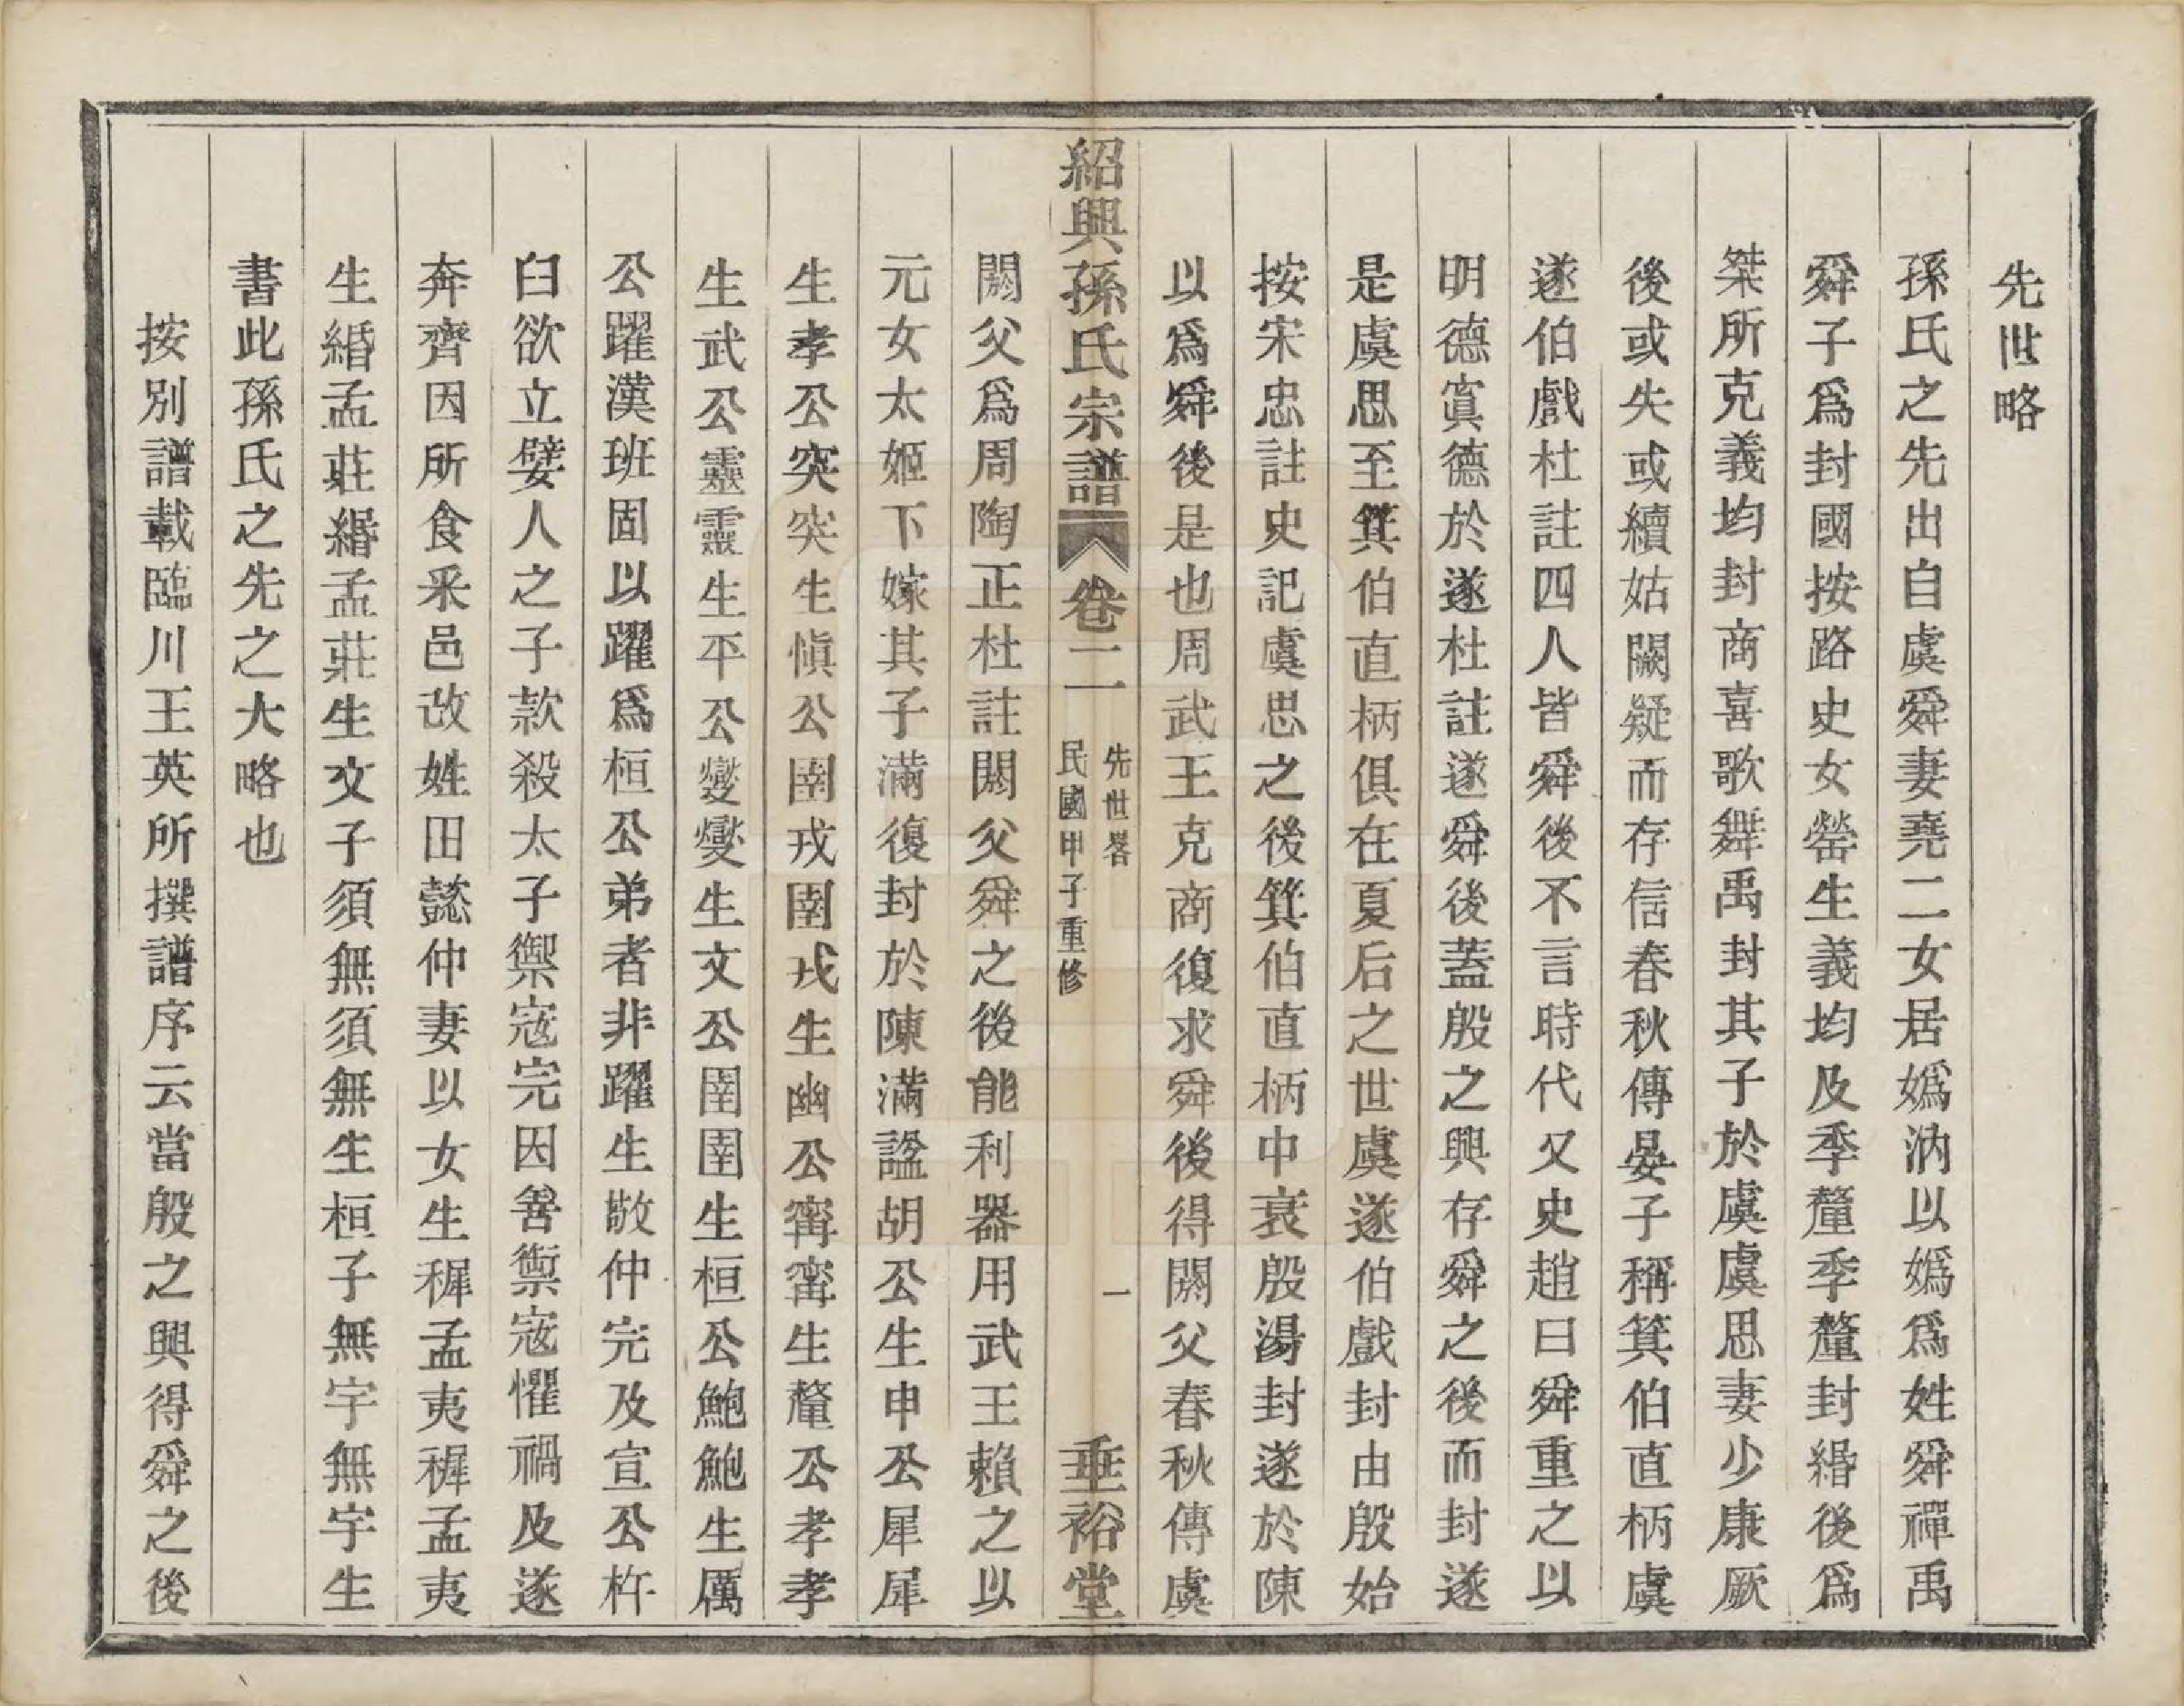 先世略
孫氏之先出自虞舜妻堯二女居嬀汭以嬀爲姓舜禪禹
舜子爲封國按路史女罃生義均及季釐季釐封緡後爲
桀所克義均封商喜歌舞禹封其子於虞虞思妻少康厥
後或失或續姑闕疑而存信春秋傳晏子稱箕伯直柄虞
遂伯戲杜註四人皆舜後不言時代又史趙曰舜重之以
明德寘德於遂杜註遂舜後蓋殷之興存舜之後而封遂
是虞思至箕伯直柄俱在夏后之世虞遂伯戲封由殷始
按宋忠註史記虞思之後箕伯直柄中衰殷湯封遂於陳
以爲舜後是也周武王克商復求舜後得閼父春秋傳虞
紹興孫氏宗譜
卷二
先世畧
民國甲子重修
一
垂裕堂
閼父爲周陶正杜註閼父舜之後能利器用武王賴之以
元女太姬下嫁其子滿復封於陳滿諡胡公生申公犀犀
生孝公突突生愼公圉戎圉戎生幽公寗寗生釐公孝孝
生武公靈靈生平公燮燮生文公圉圉生桓公鮑鮑生厲
公躍漢班固以躍爲桓公弟者非躍生敬仲完及宣公杵
臼欲立嬖人之子款殺太子禦寇完因善禦寇懼禍及遂
奔齊因所食采邑改姓田懿仲妻以女生穉孟夷穉孟夷
生緡孟莊緡孟莊生文子須無須無生桓子無宇無宇生
書此孫氏之先之大略也
按別譜載臨川王英所撰譜序云當殷之興得舜之後